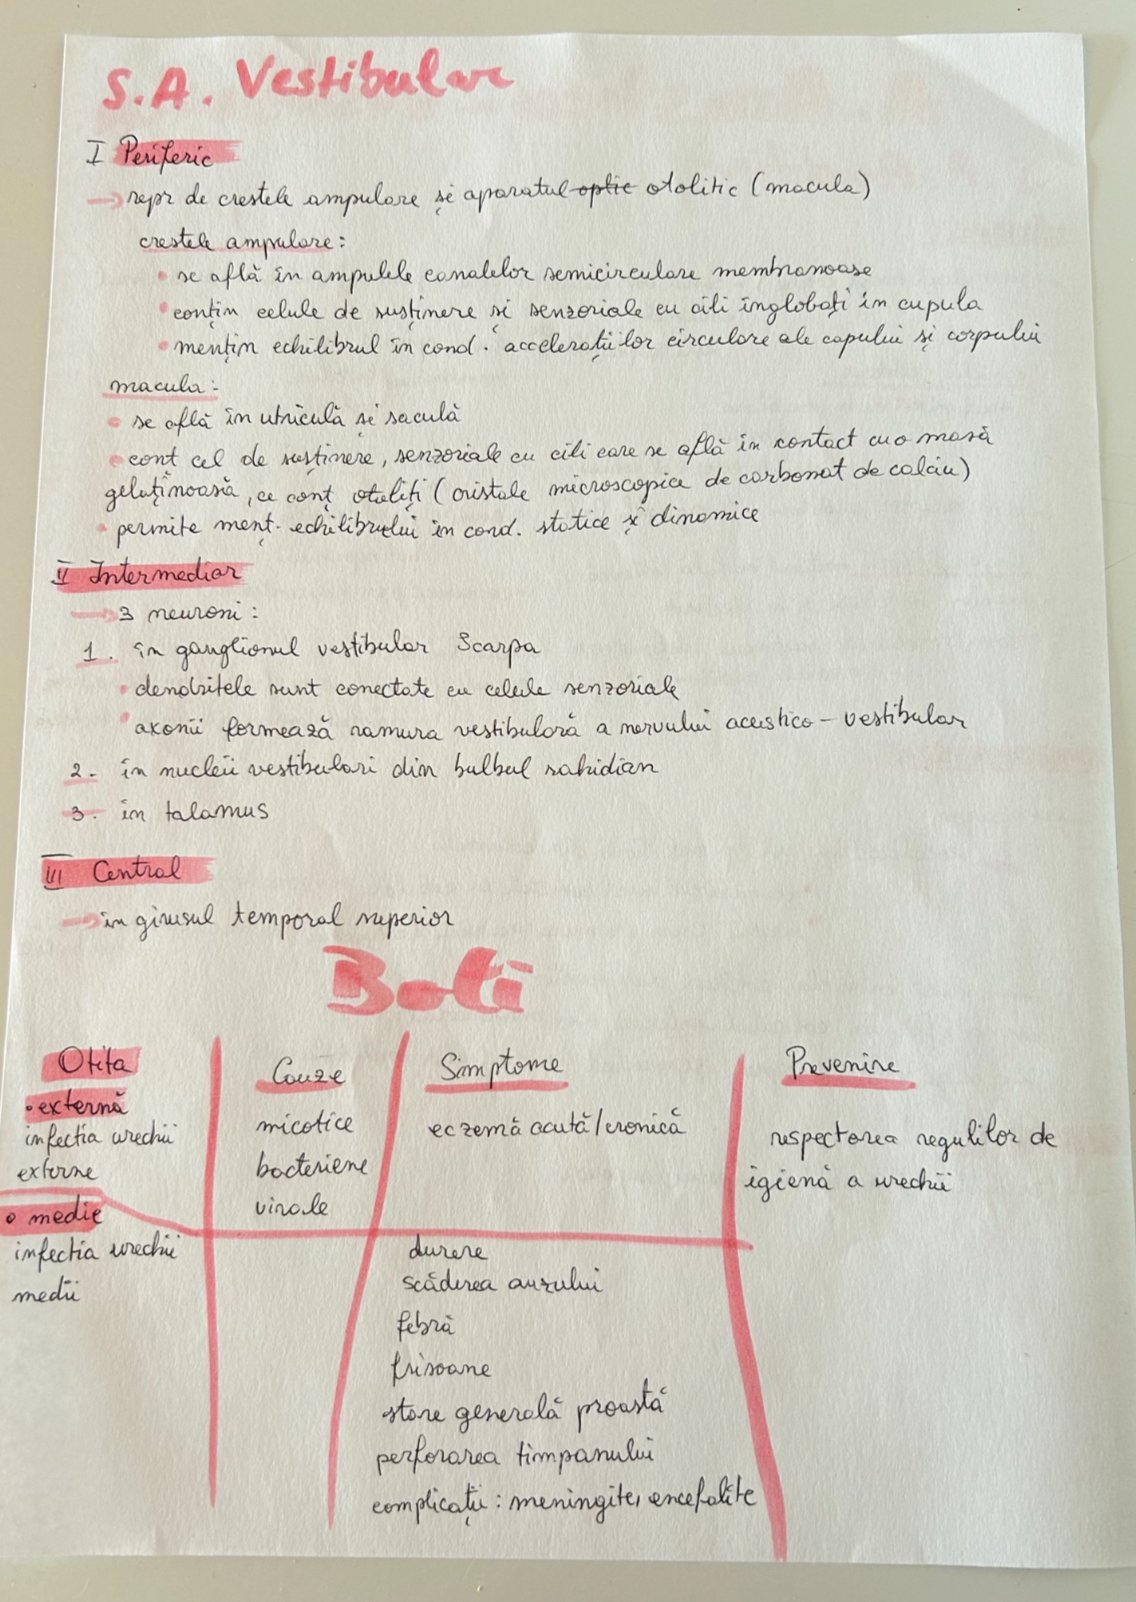 S.A. Vestibular
I Periferic
→ repr de crestele ampulare și aparatul optic otolitic (macula)
crestele ampulare:
• se află în ampulele canalelor semicirculare membranoase
• conțin celule de susținere și senzoriale cu cili înglobați în cupula
• mențin echilibrul în cond. accelerațiilor circulare ale capului și corpului
macula:
• se află în utriculă și saculă
• conț cel de susținere, senzoriale cu cili care se află în contact cu o masă
gelatinoasă, ce conț otoliți (cristale microscopice de carbonat de calciu)
• permite menț. echilibrului în cond. statice și dinamice
II Intermediar
→ 3 neuroni:
1. în ganglionul vestibular Scarpa
• dendritele sunt conectate cu celule senzoriale
• axonii formează ramura vestibulară a nervului acustico-vestibular
2. în nucleii vestibulari din bulbul rahidian
3. în talamus
III Central
→ în girusul temporal superior
Boli
Otita Cauze Simptome Prevenire
• externă
infectia urechii
externe
micotice
bacteriene
virale
eczemă acută/cronică
respectarea regulilor de
igienă a urechii
• medie
infectia urechii
medii
durere
scăderea auzului
febră
frisoane
stare generală proastă
perforarea timpanului
complicații: meningite, encefalite